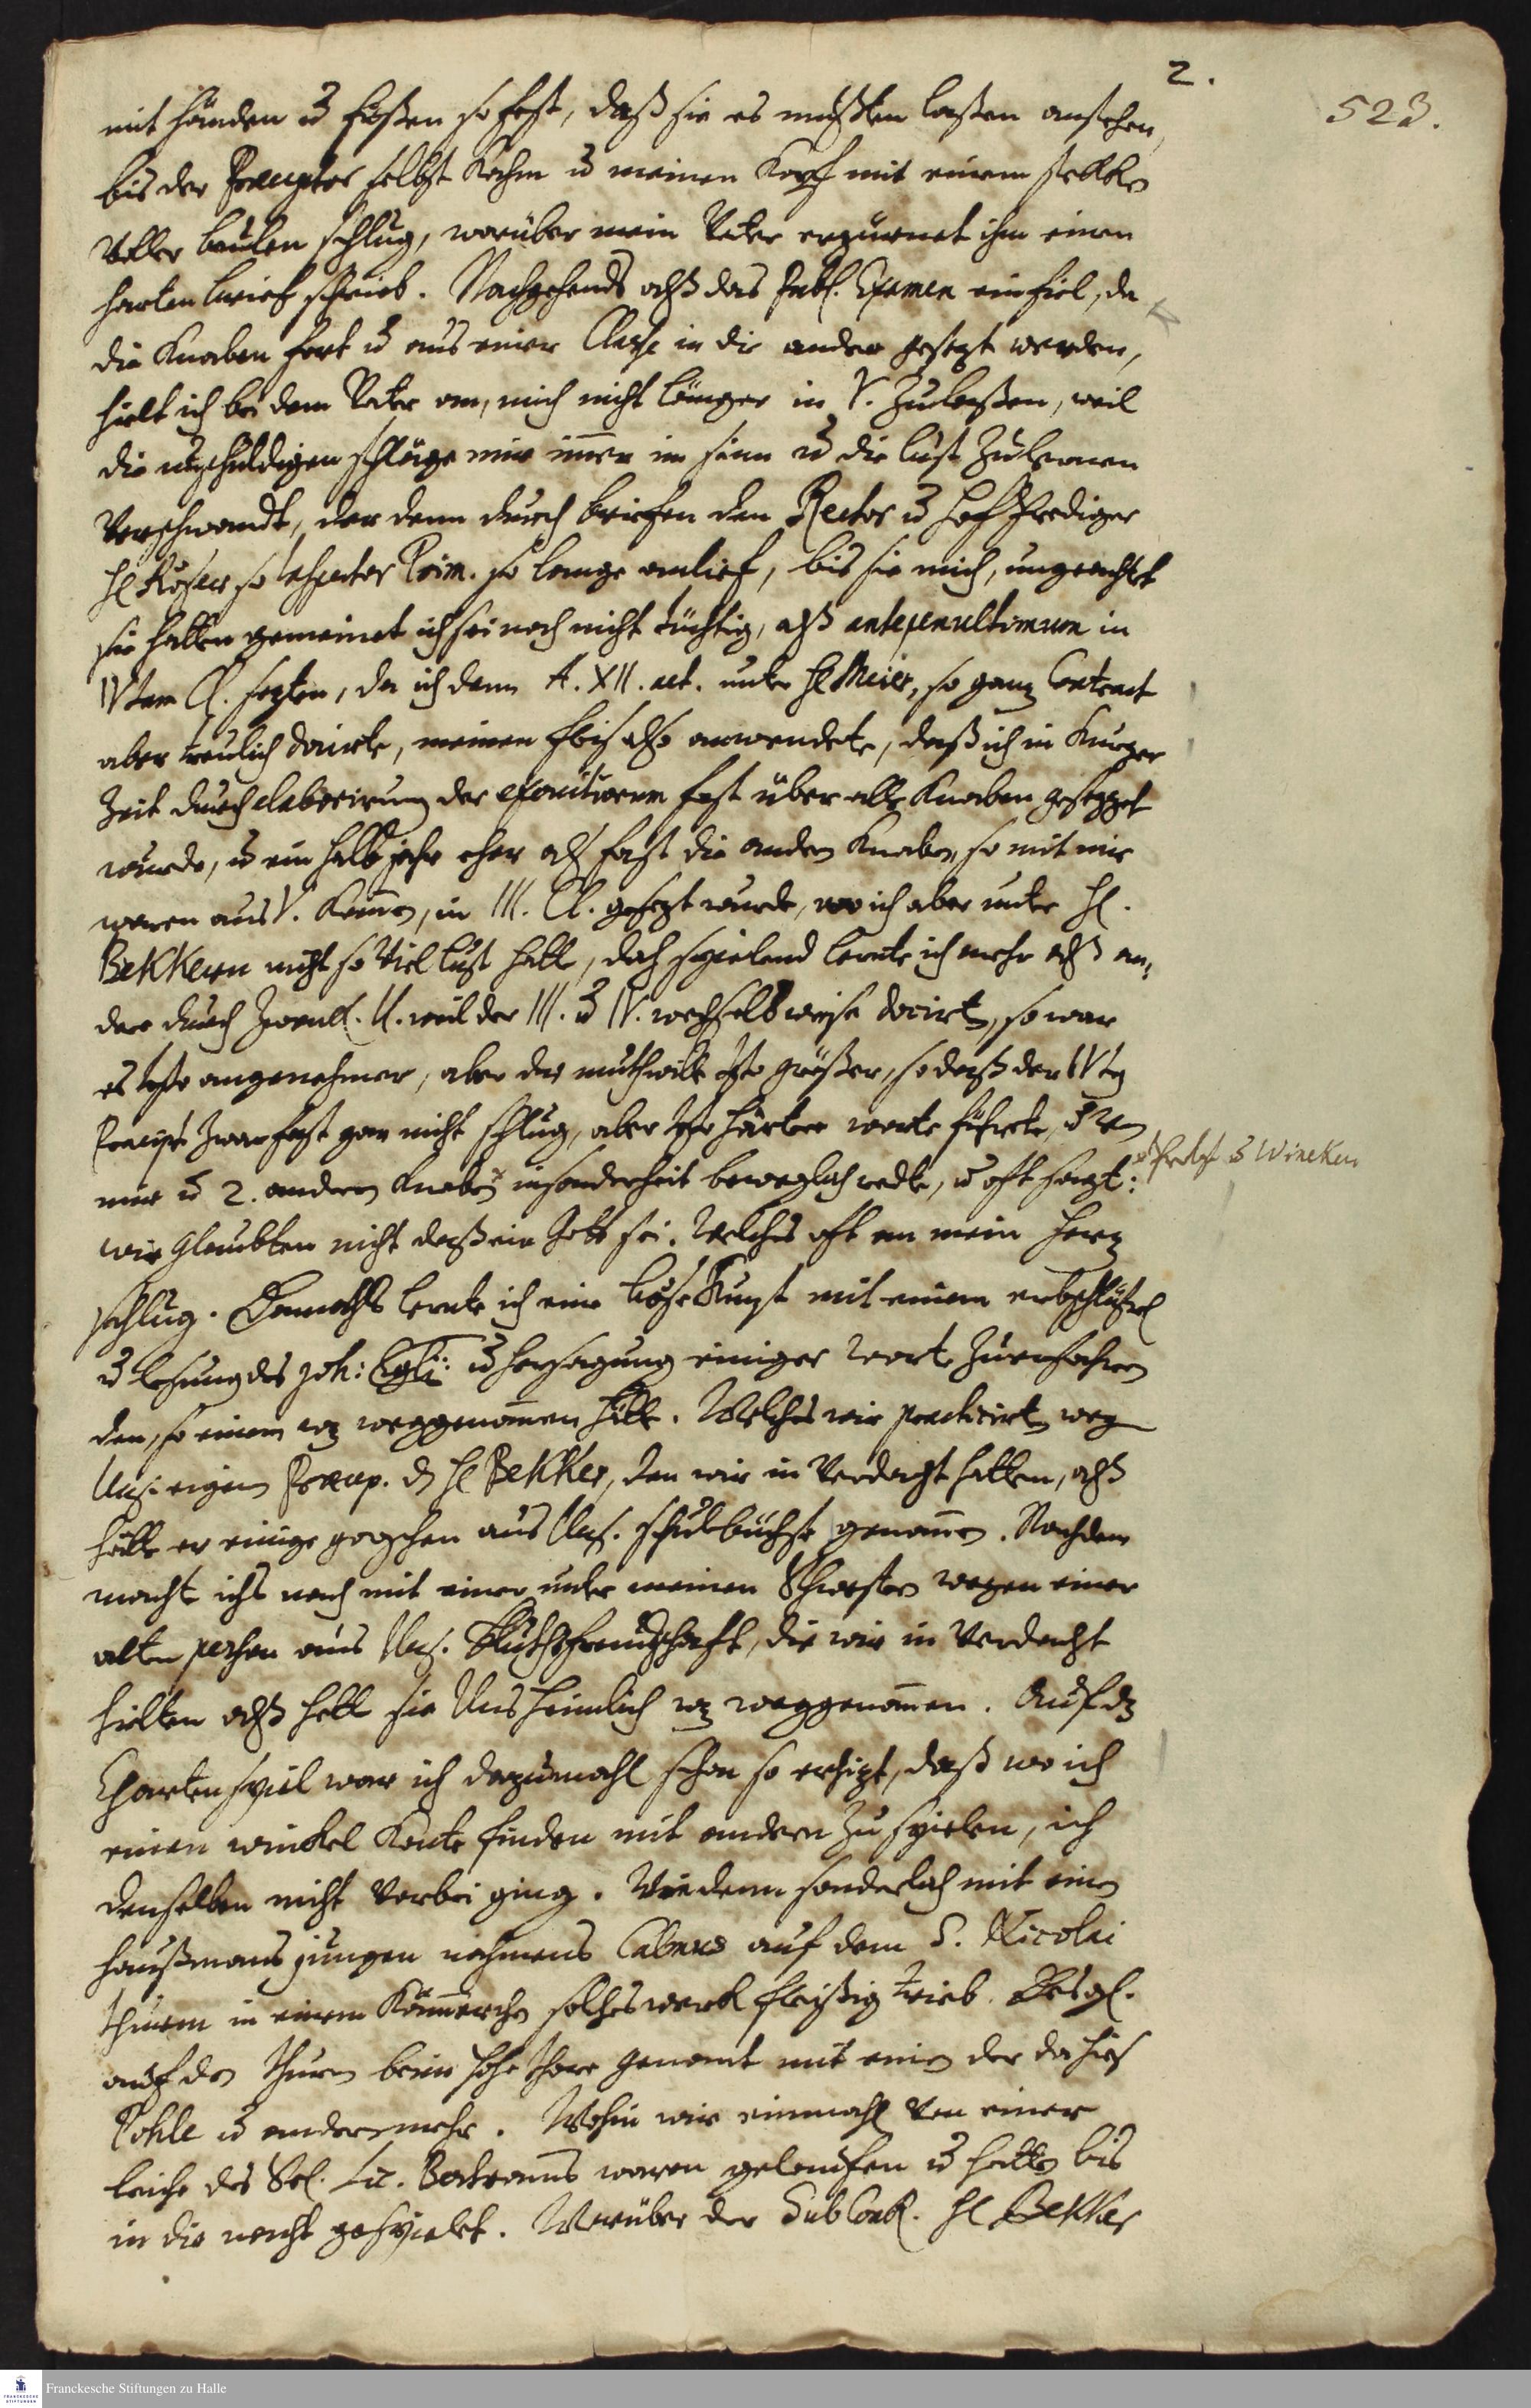 2.
523.
mit händen u füßen so fest, daß sie es musten laßen anstehen,
bis der Præceptor selbst kahm u meinen Kopf mit einem stekken
voller beulen schlug, worüber mein Vater erzürnet ihm einen
harten brief schrieb. Nachgehends alß das Publ. Examen einfiel, da
die Knaben fort u aus einer Classe in die ander gesezt werden,
hielt ich bei dem Vater an, mich nicht länger in V. zulaßen, weil
die unschuldigen schläge mir immer im sinn u die lust zulernen
verschwandt, der denn durch briefen den Rector u hof Prediger
so Inspector Prim. so lange anlief, bis sie mich, ungeachtet
sie hatten gemeinet ich sei noch nicht tüchtig, alß antepenultimum in
IVtam Cl. sezten, da ich denn A. XII. aet. unter H Meier, so ganz Contract
aber treulich docirte, meinen fleis also anwendete, daß ich in kurzer
Zeit durch elaborirung der exercitiorum fast über alle Knaben gesezzet
wurde, u ein halb jahr eher als fast die andern Knaben, so mit mir
waren aus V. kommen, in III. Cl. gesezt wurde, wo ich aber unter H.
Bekkern nicht so viel lust hatte, doch spielend lernte ich mehr alß an-
dere durch weil der III. u IV. wechselsweise docirten, so war
es angenehmer, aber der muthwille größer, so daß der IVte
Præcept. zwar fast gar nicht schlug, aber härtere worte führete, u von
mir u 2. andern Knaben insonderheit beweglich redte, u oft sagt:
u Wineken
wir glaubten nicht daß ein Gott sei. Welches oft an mein Herz
schlug. Damahls lernte ich eine böse Kunst mit einem erbschlüßel
u lesung des Joh: Evglii: u hersagung einiger worte zuerfahren
den, so einem wz weggenommen hätte. Welches wir practicirten wegen
Uns. eigenen Præcep. H Bekker, den wir in verdacht hatten, alß
hätte er einige groschen aus Uns. schulbüchse genommen. Nachdem
macht ichs noch mit einer unter meinen Schwestern wegen einer
alten person aus Uns. Bluthsfreundschaft, die wir in verdacht
hielten alß hett sie Uns heimlich wz weggenommen. Auf dz
Chartenspiel war ich dazumahl schon so erhizt, daß wo ich
einen winckel konte finden mit andern zu spielen, ich
denselben nicht vorbei ging. Wie denn sonderlich mit einen
haußmans jungen nahmens Cabnus auf dem S. Nicolai
thurm in einem Kämmerchen solches werk fleißig trieb. Desgl.
auf den thurm beim hohe thore genant mit einem der da hies
Pohle u andern mehr. Wohin wir einmahl von einer
leiche des Sel. Lic. Bertrams waren gelaufen u hatten bis
in die nacht gespielet. Worüber der SubConR. H Bekker
Franckesche Stiftungen zu Halle